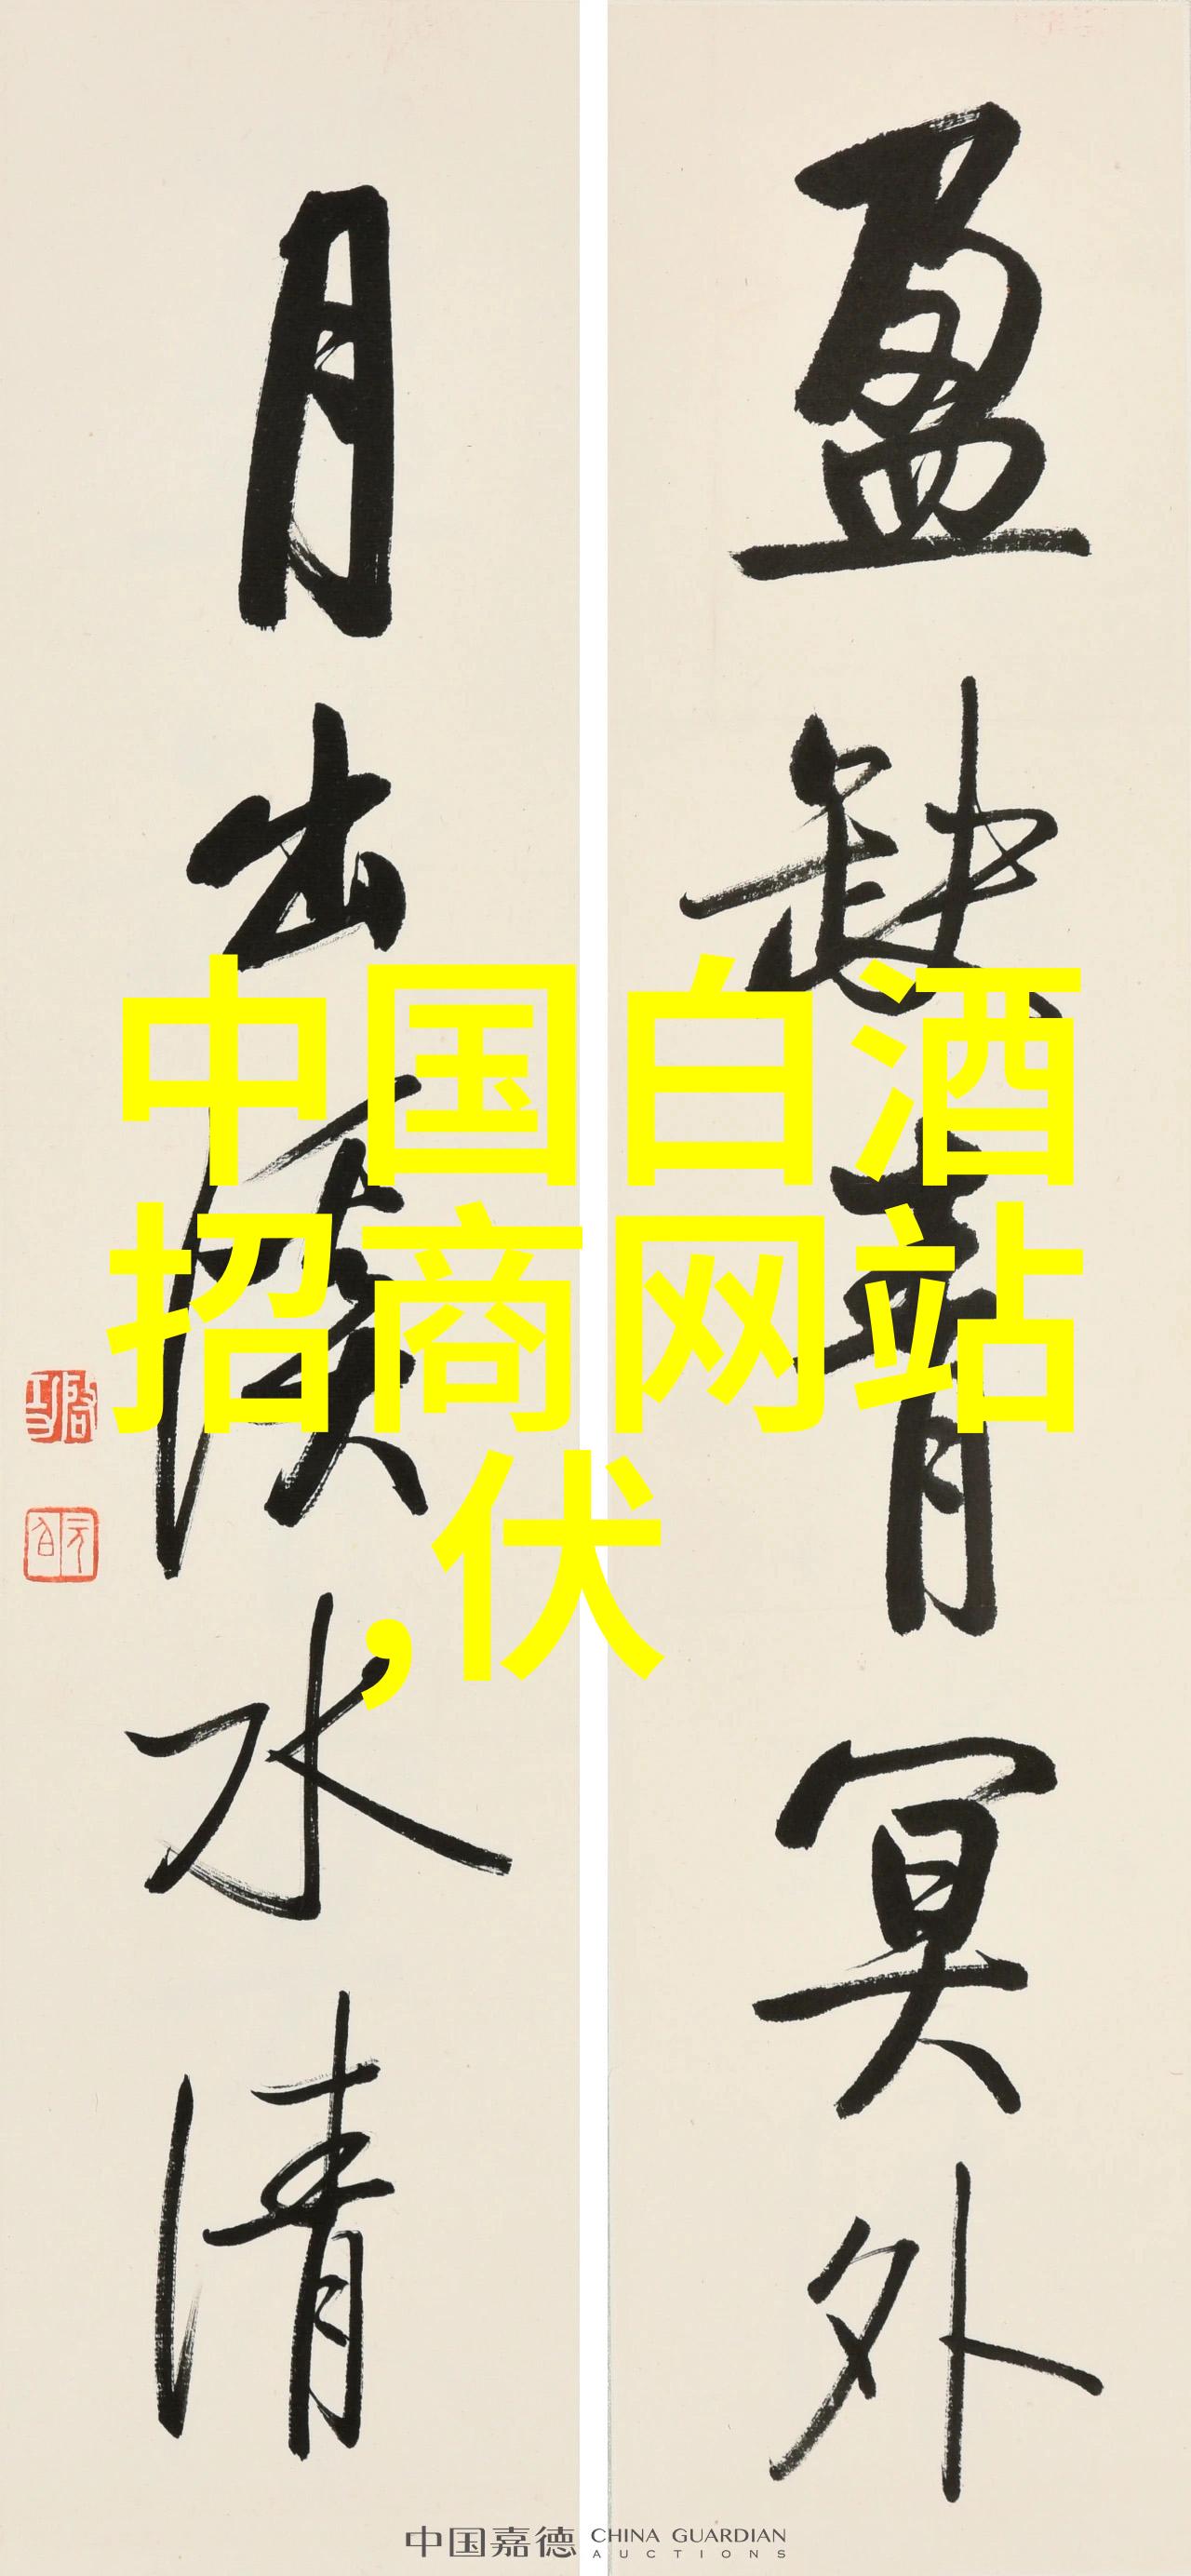 盈缺青冥外
月出溪水清
启功
元白
中国白酒
招商网站
,伏
中国嘉德 CHINA GUARDIAN
AUCTIONS